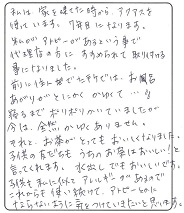 私は家を建てた時から、アクアスを
使っています。7年目になります。
私がアトピーがあるという事で
代理店の方に すすめられて取り付ける
事になりました。
前に住んでた では、お風呂
あがりがとにかく かゆくて…
寝るまでポリポリかいていましたが
今は、全然かゆくありません。
それと、お茶がとってもおいしくなりました。
子供の友だちも うちのお茶はおいしい!と
言ってくれます。水出し でもおいしいです。
子供も私に似て アレルギーがあるので
これからも使い続けて、アトピーなどに
ならないように 気をつけていきたいと思います。